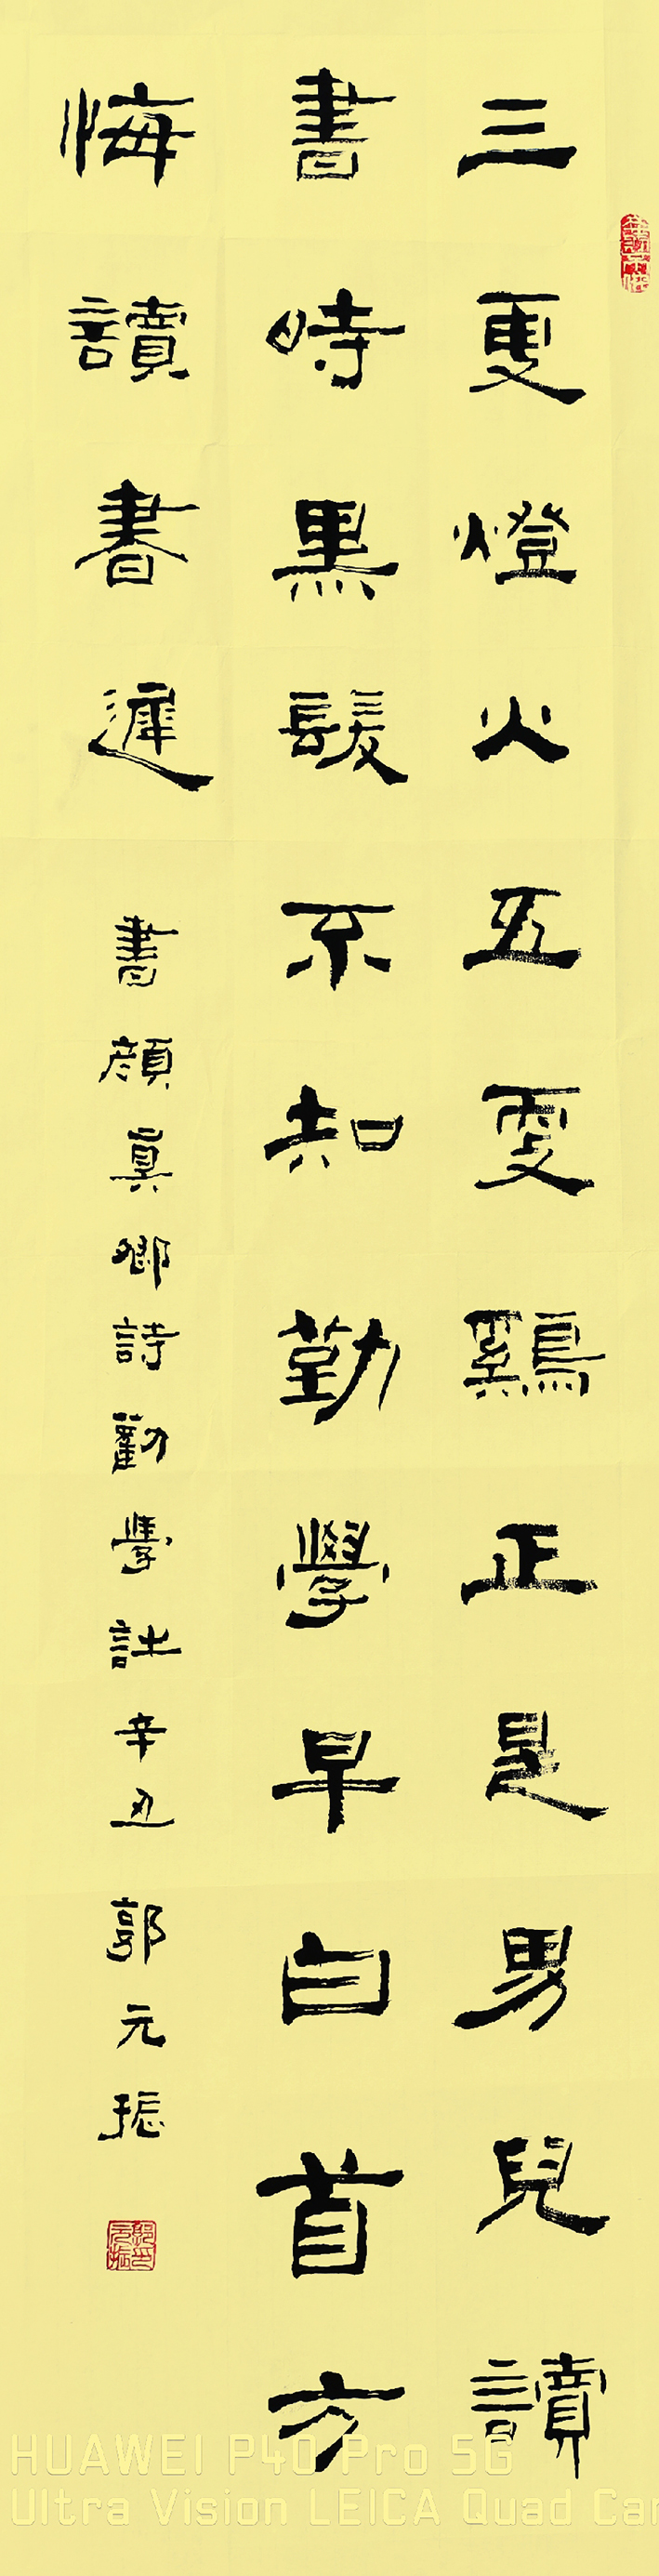 三更燈火五更鷄正是男兒讀
書時黑髮不知勤學早白首方
悔讀書遲
書顏真卿詩勸學詩辛丑郭元振
HUAWEI P40 Pro 5G
Ultra Vision LEICA Quad Cam